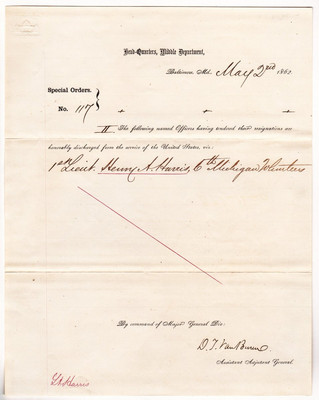 Head-Quarters, Middle Department,
Baltimore, Md. May 2nd 186
Special Orders.
No. 117
II The following named Officers having tendered their resignations are
honorably discharged from the service of the United States, viz:
1st Lieut. Henry A. Harris, 6th Michigan Volunteers
By command of Major General Dix:
D. T. Van Buren
Assistant Adjutant General.
Lt. Harris